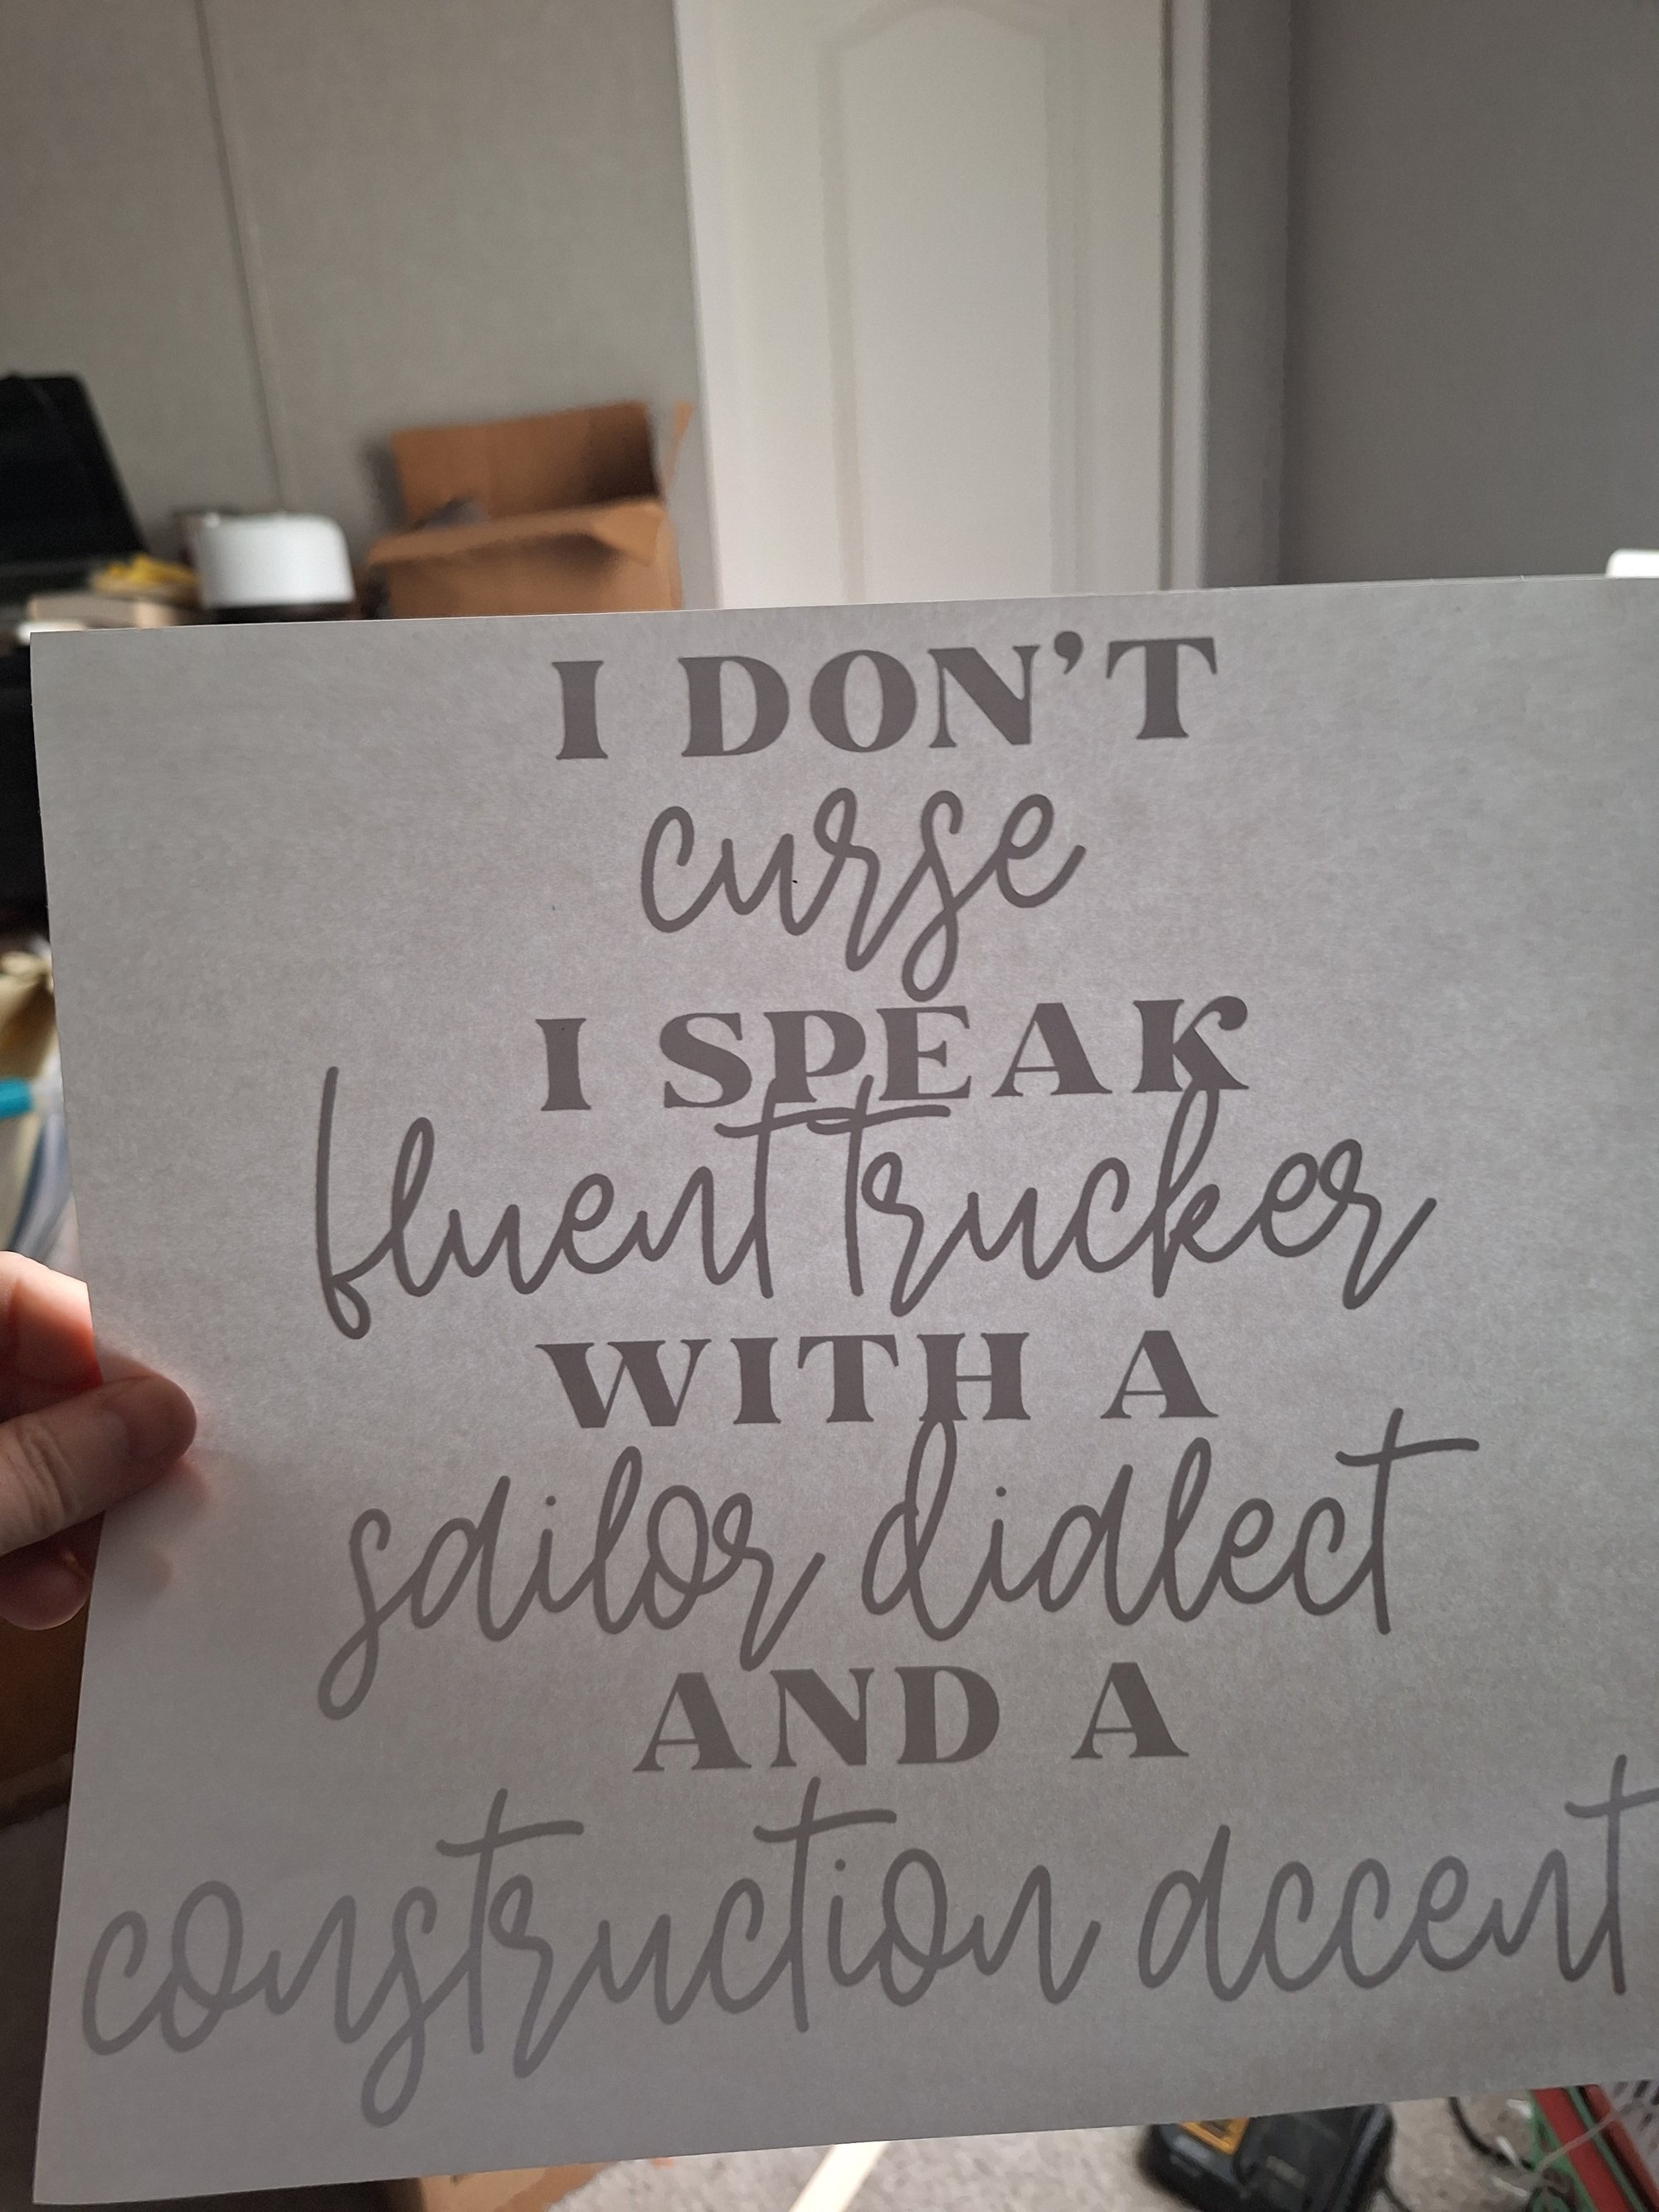 I DON'T
curse
I SPEAK
fluent trucker
WITH A
sailor dialect
AND A
construction accent